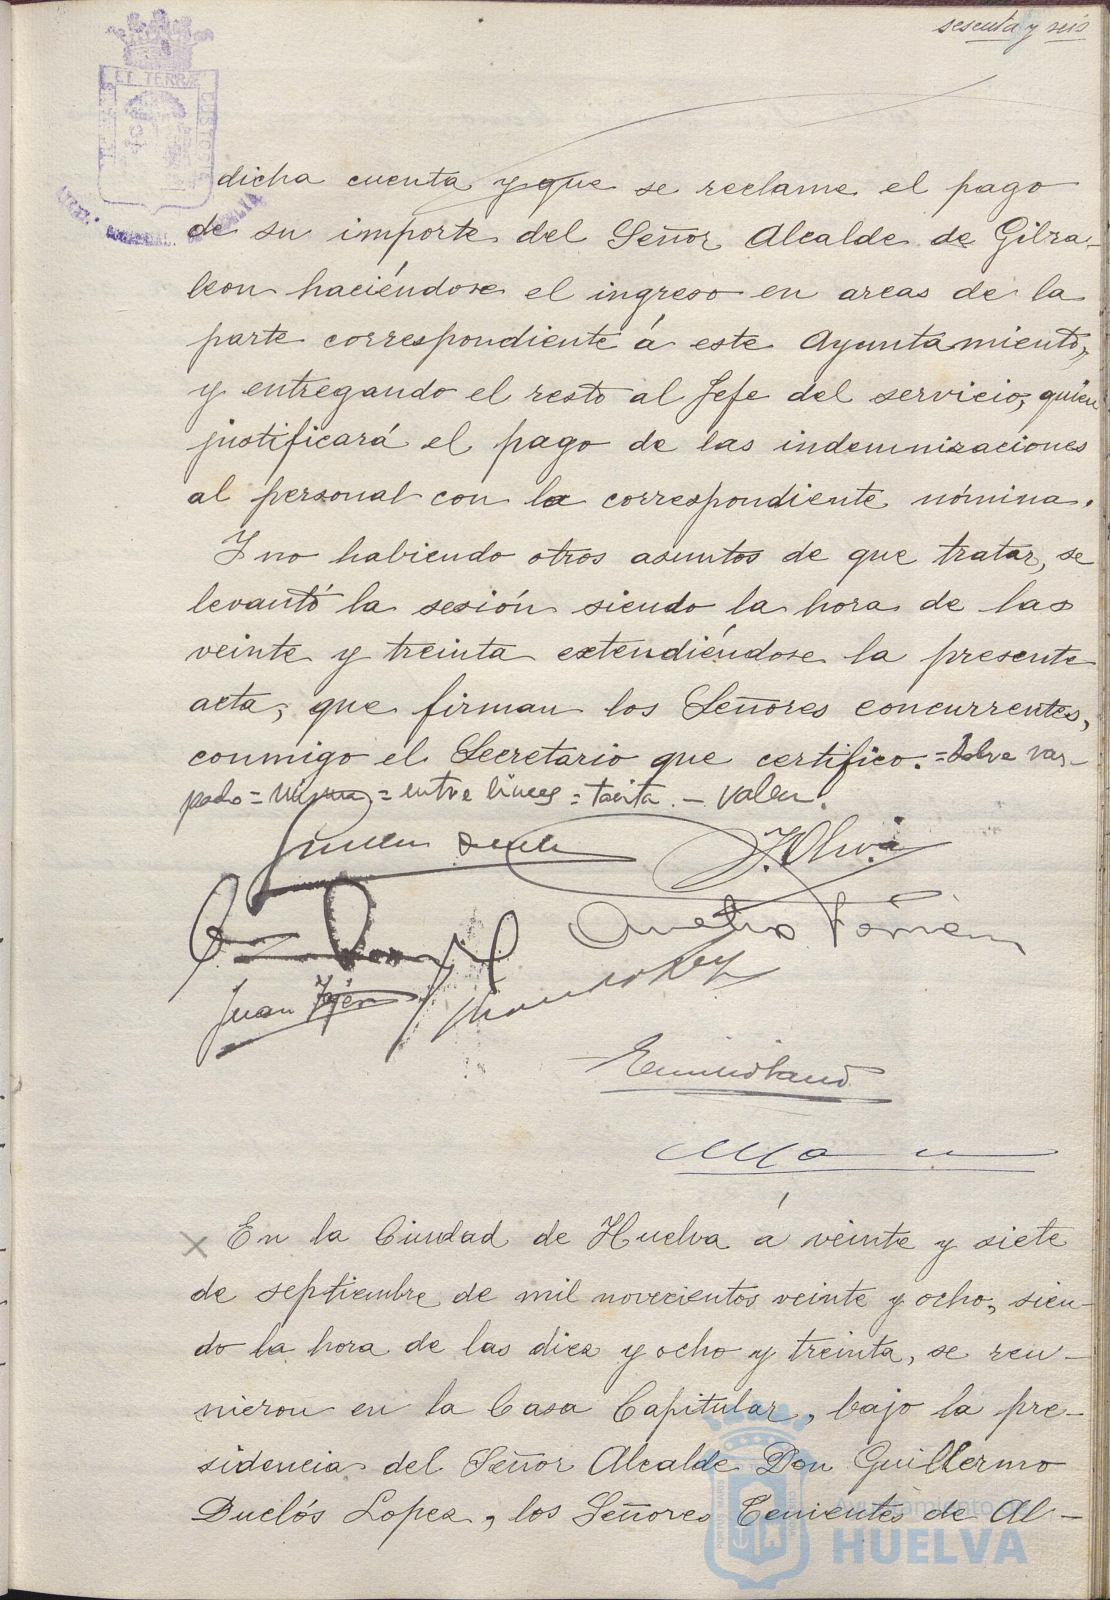 sesenta y seis
ET TERRÆ
CUSTODIA
dicha cuenta y que se reclame el pago
de su importe del Señor Alcalde de Gibra-
leon haciéndose el ingreso en arcas de la
parte correspondiente á este Ayuntamiento,
y entregando el resto al Jefe del servicio, quien
justificará el pago de las indemnizaciones
al personal con la correspondiente nómina.
Y no habiendo otros asuntos de que tratar, se
levantó la sesión siendo la hora de las
veinte y treinta extendiéndose la presente
acta, que firman los Señores concurrentes,
conmigo el Secretario que certifico. = Sobre ras-
pado = = entre lineas = = Valen.
J. Oliva
Juan
En la Ciudad de Huelva á veinte y siete
de septiembre de mil novecientos veinte y ocho, sien-
do la hora de las diez y ocho y treinta, se reu-
nieron en la Casa Capitular, bajo la pre-
sidencia del Señor Alcalde Don Guillermo
Duclós Lopez, los Señores Tenientes de Al-
Ayuntamiento de
HUELVA